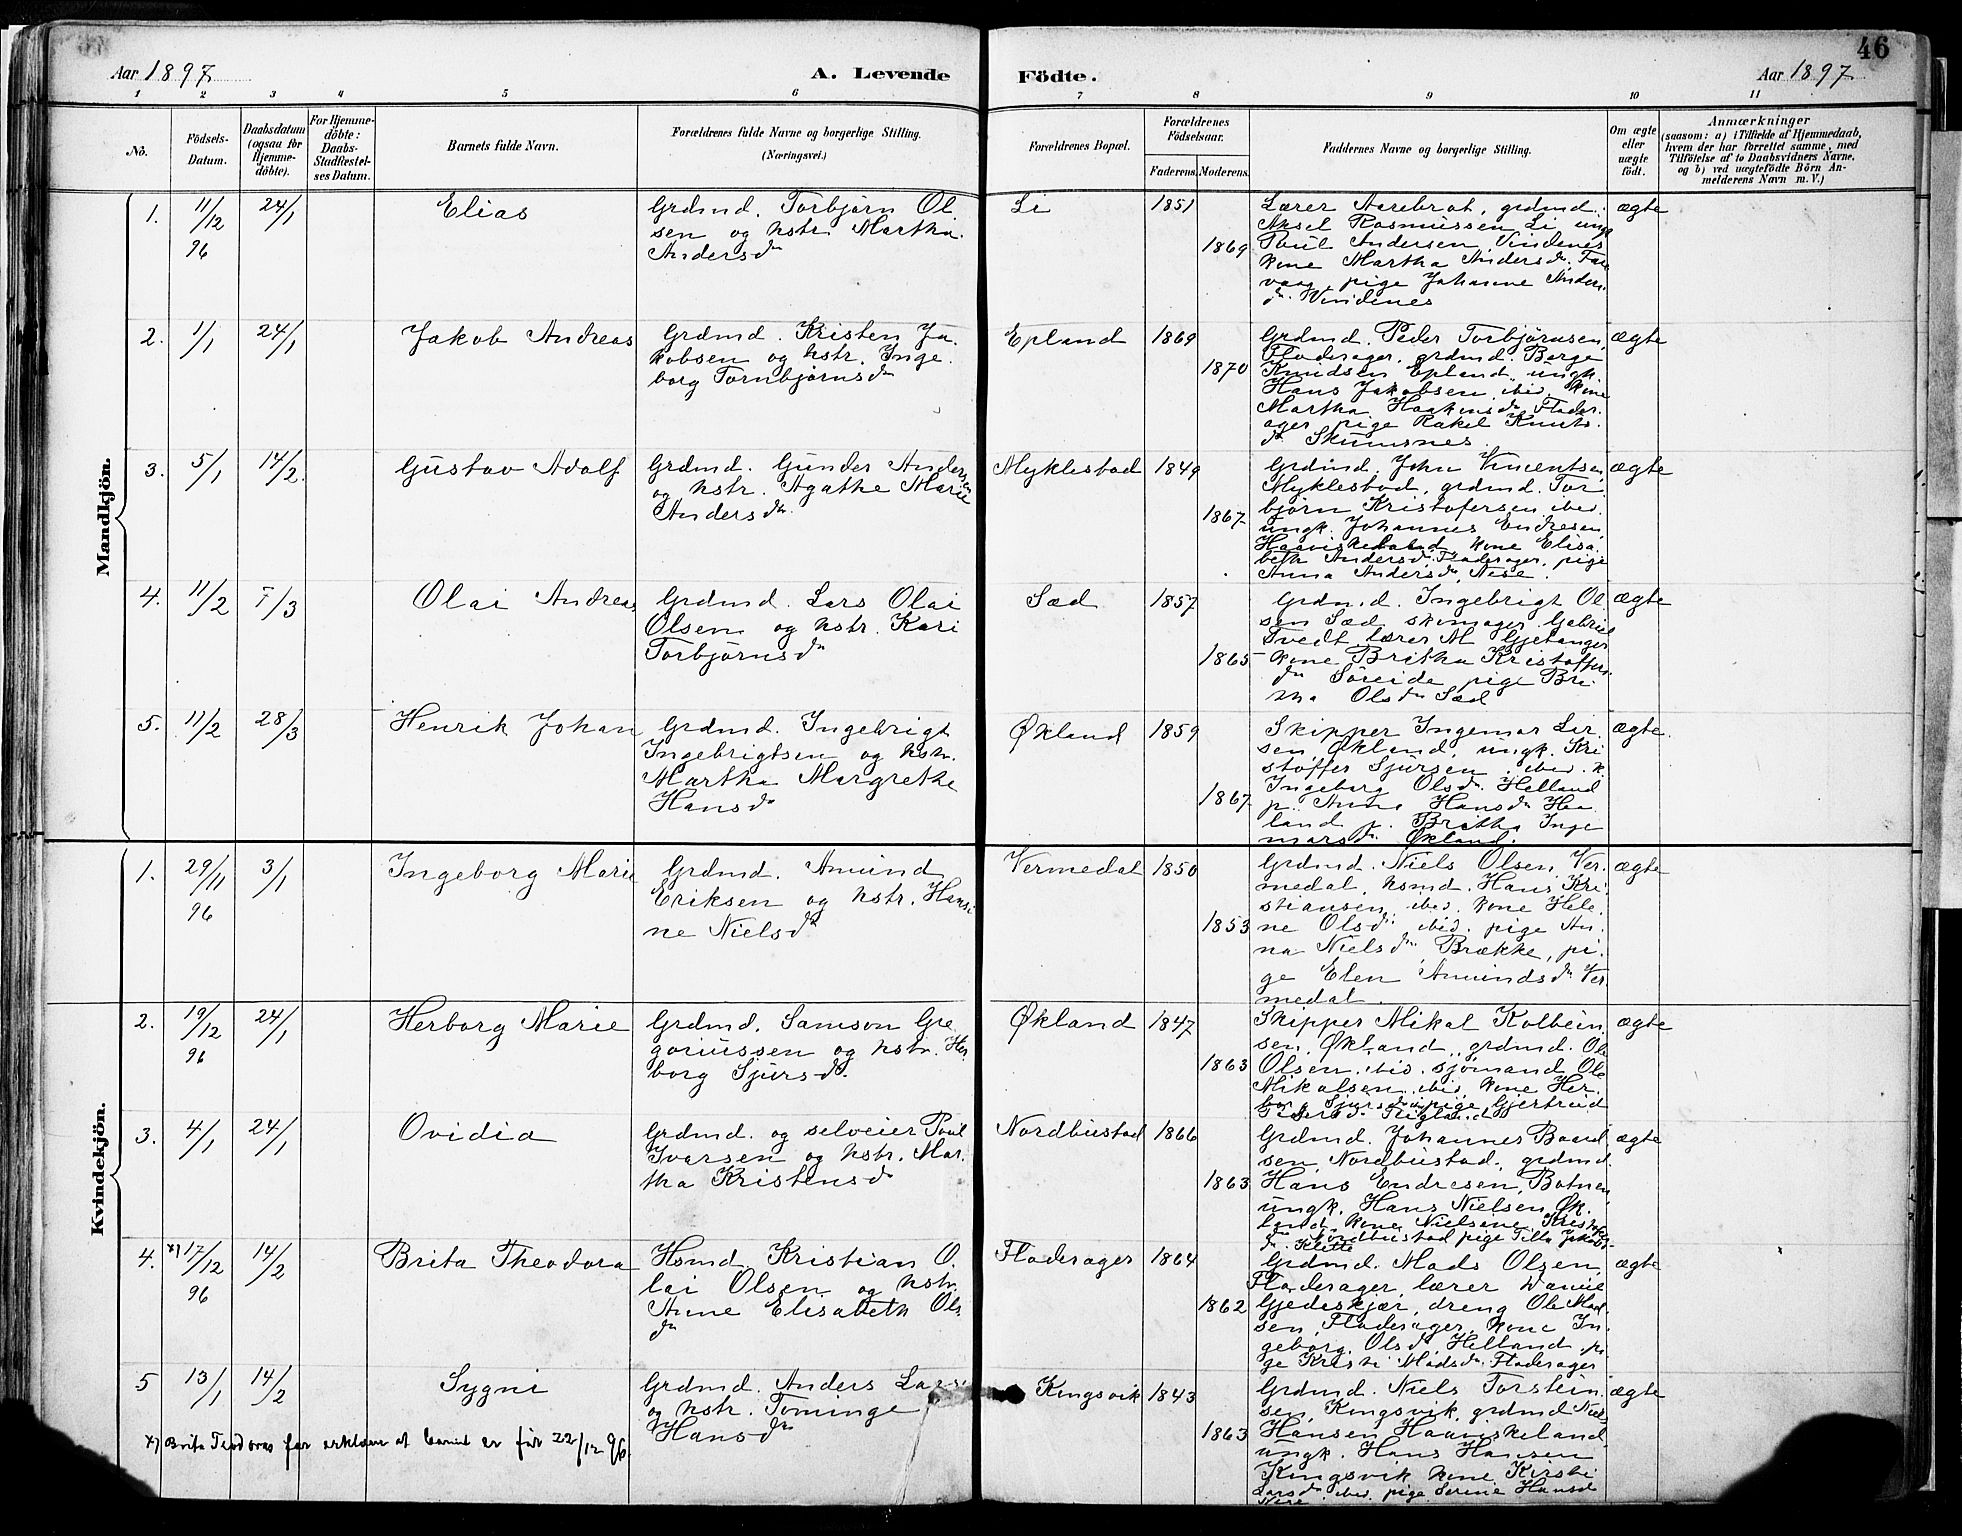 46
Aar 1897
A. Levende
Födte.
Aar 1897
1 2 3 4 5 6 7 8 9 10 11
No.
Födsels-
Datum.
Daabsdatum
(ogsaa for
Hjemme-
döbte).
For Hjemme-
döbte:
Daabs-
Stadfæstel-
ses Datum.
Barnets fulde Navn.
Forældrenes fulde Navne og borgerlige Stilling.
(Næringsvei.)
Forældrenes Bopæl.
Forældrenes
Födselsaar.
Faderens. Moderens.
Faddernes Navne og borgerlige Stilling.
Om ægte
eller
uægte
födt.
Anmærkninger
(saasom: a) i Tilfælde af Hjemmedaab,
hvem der har forrettet samme, med
Tilföielse af to Daabsvidners Navne,
og b) ved uægtefödte Börn An-
melderens Navn m. V.)
Mandkjön.
1. 11/12 96 24/1 Elias
Grdmd. Torbjørn Ol
sen og hstr. Martha
Andersdn
Li 1851 1869
Lærer Aarebrot, grdmd.
Aksel Rasmussen Li, ungk
Paul Andersen Vindenes
kone Martha Andersdn
vaag, pige Johanne Anders
dn Vindenes
ægte
2. 1/1 24/1 Jakob Andreas
Grdmd. Kristen Ja
kobsen og hstr. Inge
borg Tornbjørnsdn
Epland 1869 1870
Grdmd. Peder Torbjørnsen
Fladerager, grdmd. Børge
Knudsen Epland, ungk.
Hans Jakobsen ibid. kone
Martha Haakensdn Flader
ager, pige Rakel Knuts
dn Skumsnes
ægte
3. 5/1 14/2 Gustav Adolf
Grdmd. Gunder Andersen
og hstr. Agathe Marie
Andersdn
Myklestad 1849 1867
Grdmd. John Vincentsen
Myklestad, grdmd. Tor
bjørn Kristofersen ibid.
ungk. Johannes Endresen
Haaviskeland, kone Elisa
beth Andersdn Fladerager, pige
Anna Andersdn Nese.
ægte
4. 11/2 7/3 Olai Andreas
Grdmd. Lars Olai
Olsen og hstr. Kari
Torbjørnsdn
Sæd 1857 1865
Grdmd. Ingebrigt Ol
sen Sæd skomager Gabriel
Tvedt lærer M Gjetanger
kone Britha Kristoffers
dn Søreide, pige Bri
tha Olsdn Sæd
ægte
5. 11/2 28/3 Henrik Johan
Grdmd. Ingebrigt
Ingebrigtsen og hstr.
Martha Margrethe
Hansdn
Økland 1859 1867
Skipper Ingemar Lar
sen Økland, ungk. Kri
stoffer Sjursen ibid. k.
Ingeborg Olsdn Helland
p. Anna Hansdn Haa
land p. Britha Inge
marsdn Økland.
ægte
Kvindekjön.
1. 29/11 96 3/1 Ingeborg Marie
Grdmd. Amund
Eriksen og hstr. Hansi
ne Nielsdn
Vermedal 1850 1853
Grdmd. Niels Olsen Ver
medal, hsmd. Hans Kri
stiansen ibid. kone Hele
ne Olsdn ibid. pige An
na Nielsdn Brække, pi
ge Elen Amundsdn Ver
medal.
ægte
2. 19/12 96 24/1 Herborg Marie
Grdmd. Samson Gre
goriussen og hstr. Her
borg Sjursdn
Økland 1847 1863
Skipper Mikal Kolbein
sen, Økland, grdmd. Ole
Olsen ibid. sjømand Ole
Mikalsen ibid. kone Her
borg Sjursdn pige Gjertrud
ægte
3. 4/1 24/1 Ovidia
Grdmd. og selveier Poul
Ivarsen og hstr. Mar
tha Kristensdn
Nordbustad 1866 1863
Grdmd. Johannes Baard
sen Nordbustad, grdmd.
Hans Endresen, Botnen
ungk. Hans Nielsen Øk
land, kone Nielsine Kristofers
dn Nordbustad pige Jakobs
dn Klette
ægte
4. x) 17/12 96 14/2 Brita Theodora
Hsmd Kristian O
lai Olsen og hstr.
Anne Elisabeth Ols
dn
Fladerager 1864 1862
Grdmd. Mads Olsen
Fladerager, lærer Daniel
Gjedeskjær, dreng Ole Mad
sen Fladerager, kone In
geborg Olsdn Helland pi
ge Kristi Madsdn Fladerager
ægte
5 13/1 14/2 Sygni
Grdmd. Anders Larsen
og hstr. Tominge
Hansdn
Kingsvik 1843 1863
Grdmd. Niels Torstein
sen, Kingsvik, grdmd Niels
Hansen Haaviskeland
ungk. Hans Hansen
Kingsvik kone Kirsti
Larsdn ibid. pige Serine Hansd
Nese
ægte
x) Brita Teodoras far erklærer at barnet er født 22/12 96.